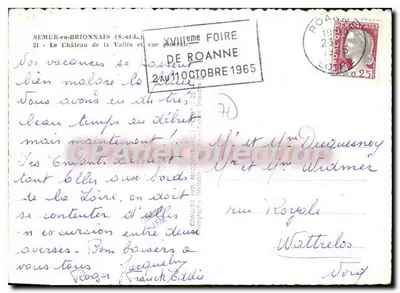 SEMUR-en-BRIONNAIS (S.-et-L.)
21 - Le Château de la Vallée et vue générale
XVIIIeme FOIRE
DE ROANNE
2 au 11 OCTOBRE 1965
ROANNE
0,25
Vos vacances se passent
bien malgré la pluie
Nous avons eu du très
beau temps au début
mais maintenant !
Les Enfants aiment
tant aller aux bords
de la Loire, on doit
se contenter d'aller
en excursion entre deux
averses. Bons baisers à
vous tous Jacqueline
Roger Franck Eddie
Mr et Mme Duquesnoy
Mr et Mme Widmer
rue Royale
Wattrelos
Nord